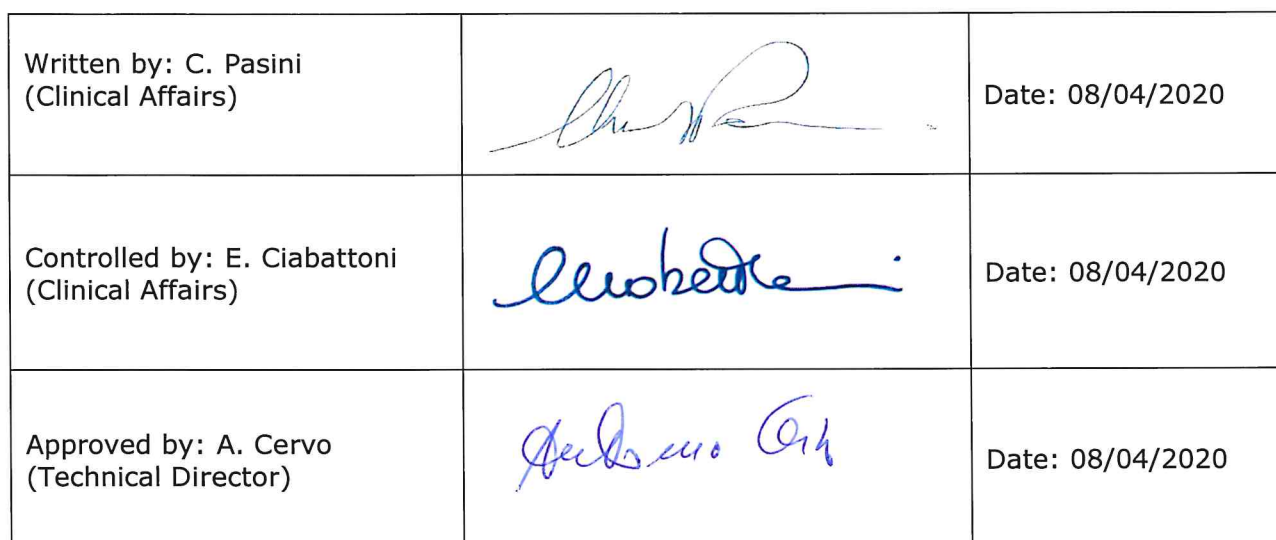 Written by: C. Pasini
(Clinical Affairs)
Date: 08/04/2020
Controlled by: E. Ciabattoni
(Clinical Affairs)
Date: 08/04/2020
Approved by: A. Cervo
(Technical Director)
Date: 08/04/2020